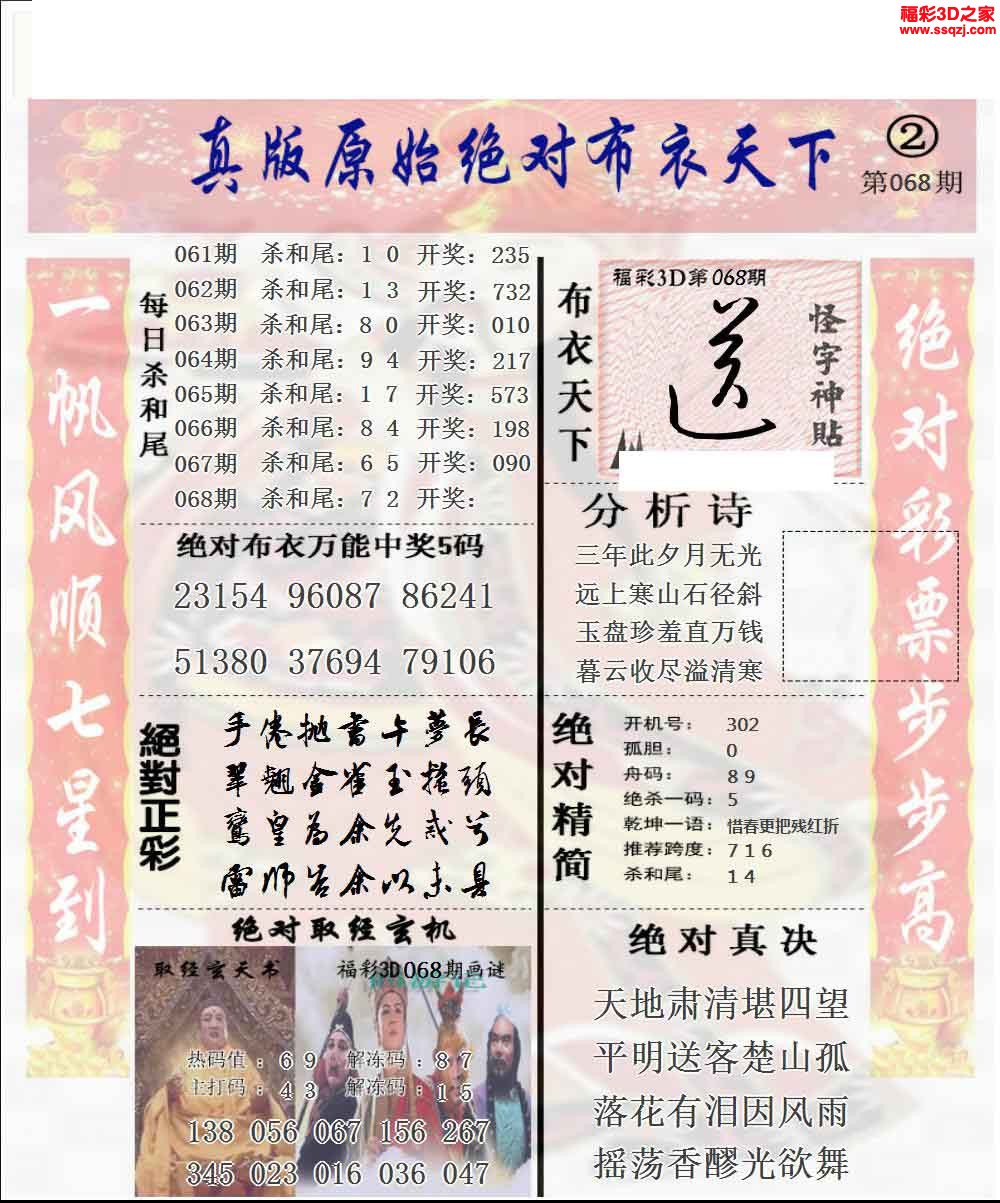 福彩3D之家
www.ssqzj.com
真版原始绝对布衣天下
②
第068期
一帆风顺七星到
每日杀和尾
061期 杀和尾：1 0 开奖：235
062期 杀和尾：1 3 开奖：732
063期 杀和尾：8 0 开奖：010
064期 杀和尾：9 4 开奖：217
065期 杀和尾：1 7 开奖：573
066期 杀和尾：8 4 开奖：198
067期 杀和尾：6 5 开奖：090
068期 杀和尾：7 2 开奖：
绝对布衣万能中奖5码
23154 96087 86241
51380 37694 79106
絕對正彩
手倦抛書午夢長
翠翹金雀玉搔頭
鸞皇為余先戒兮
雷师告余以未具
绝对取经玄机
取经玄天书
福彩3D068期画谜
热码值：6 9 解冻码：8 7
主打码：4 3 解冻码：1 5
138 056 067 156 267
345 023 016 036 047
布衣天下
福彩3D第068期
送
怪字神贴
分析诗
三年此夕月无光
远上寒山石径斜
玉盘珍羞直万钱
暮云收尽溢清寒
绝对精简
开机号： 302
孤胆： 0
舟码： 8 9
绝杀一码：5
乾坤一语：惜春更把残红折
推荐跨度：7 1 6
杀和尾： 1 4
绝对真决
天地肃清堪四望
平明送客楚山孤
落花有泪因风雨
摇荡香醪光欲舞
绝对彩票步步高